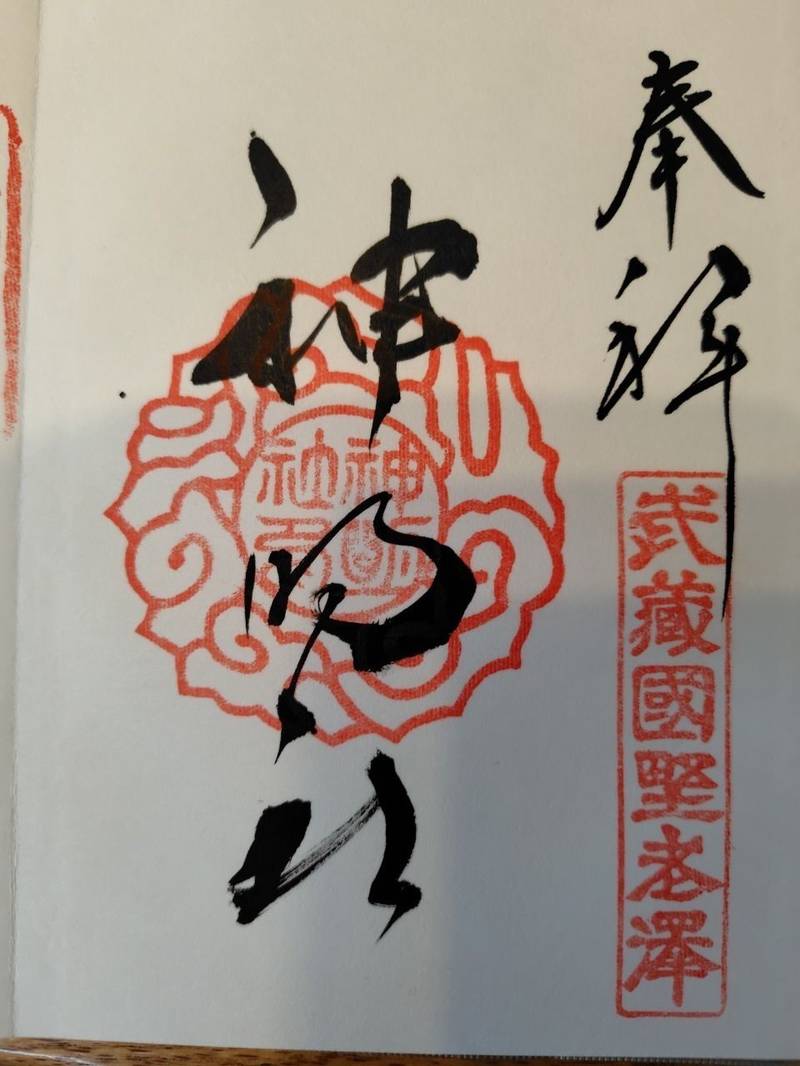 奉拝
武藏國野老澤
神明社
神明
社印